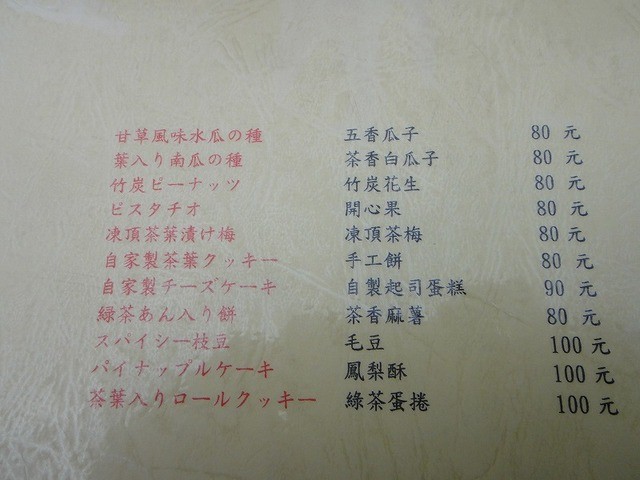 甘草風味水瓜の種 五香瓜子 80 元
葉入り南瓜の種 茶香白瓜子 80 元
竹炭ピーナッツ 竹炭花生 80 元
ピスタチオ 開心果 80 元
凍頂茶葉漬け梅 凍頂茶梅 80 元
自家製茶葉クッキー 手工餅 80 元
自家製チーズケーキ 自製起司蛋糕 90 元
緑茶あん入り餅 茶香麻薯 80 元
スパイシー枝豆 毛豆 100 元
パイナップルケーキ 鳳梨酥 100 元
茶葉入りロールクッキー 綠茶蛋捲 100 元